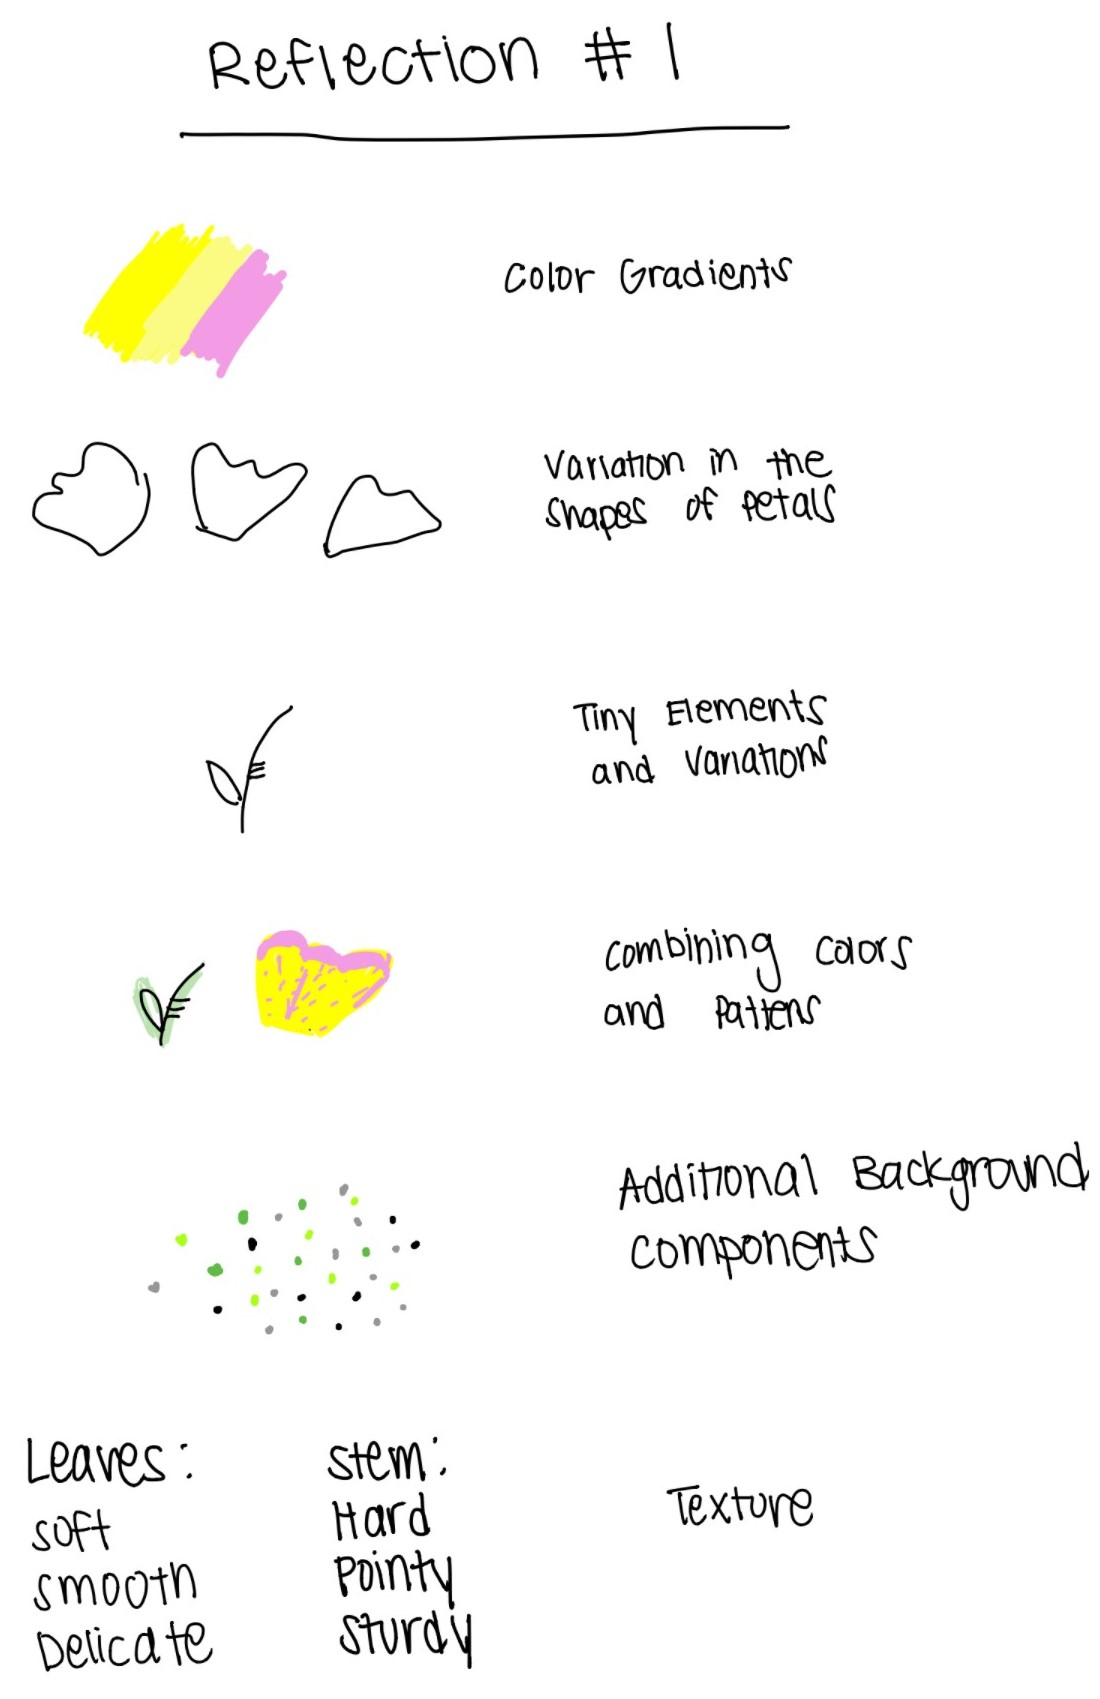 Reflection # 1
Color Gradients
Variation in the
shapes of petals
Tiny Elements
and variations
combining colors
and Pattens
Additional Background
components
Leaves:
soft
smooth
Delicate
stem:
Hard
Pointy
Sturdy
Texture